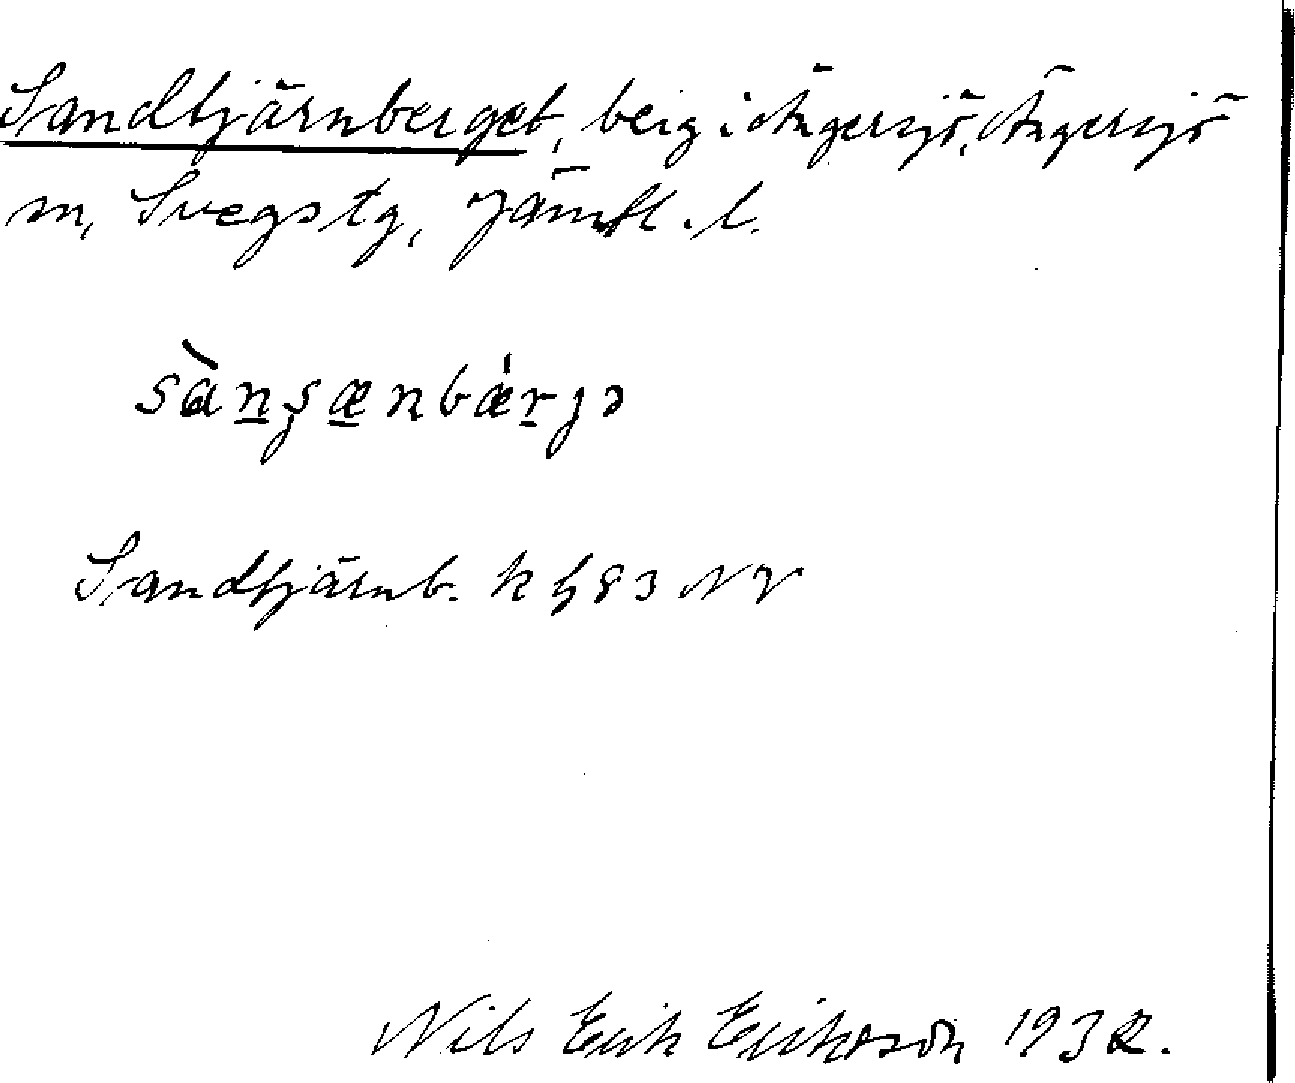 Sandtjärnberget, berg i Ängersjö, Ängersjö
sn, Svegs tg, Jämtl. l.
sàn̠ʂæ̠nbǽr̠jə
Sandtjärnb. k h 83 NV
Nils Erik Eriksson 1932.